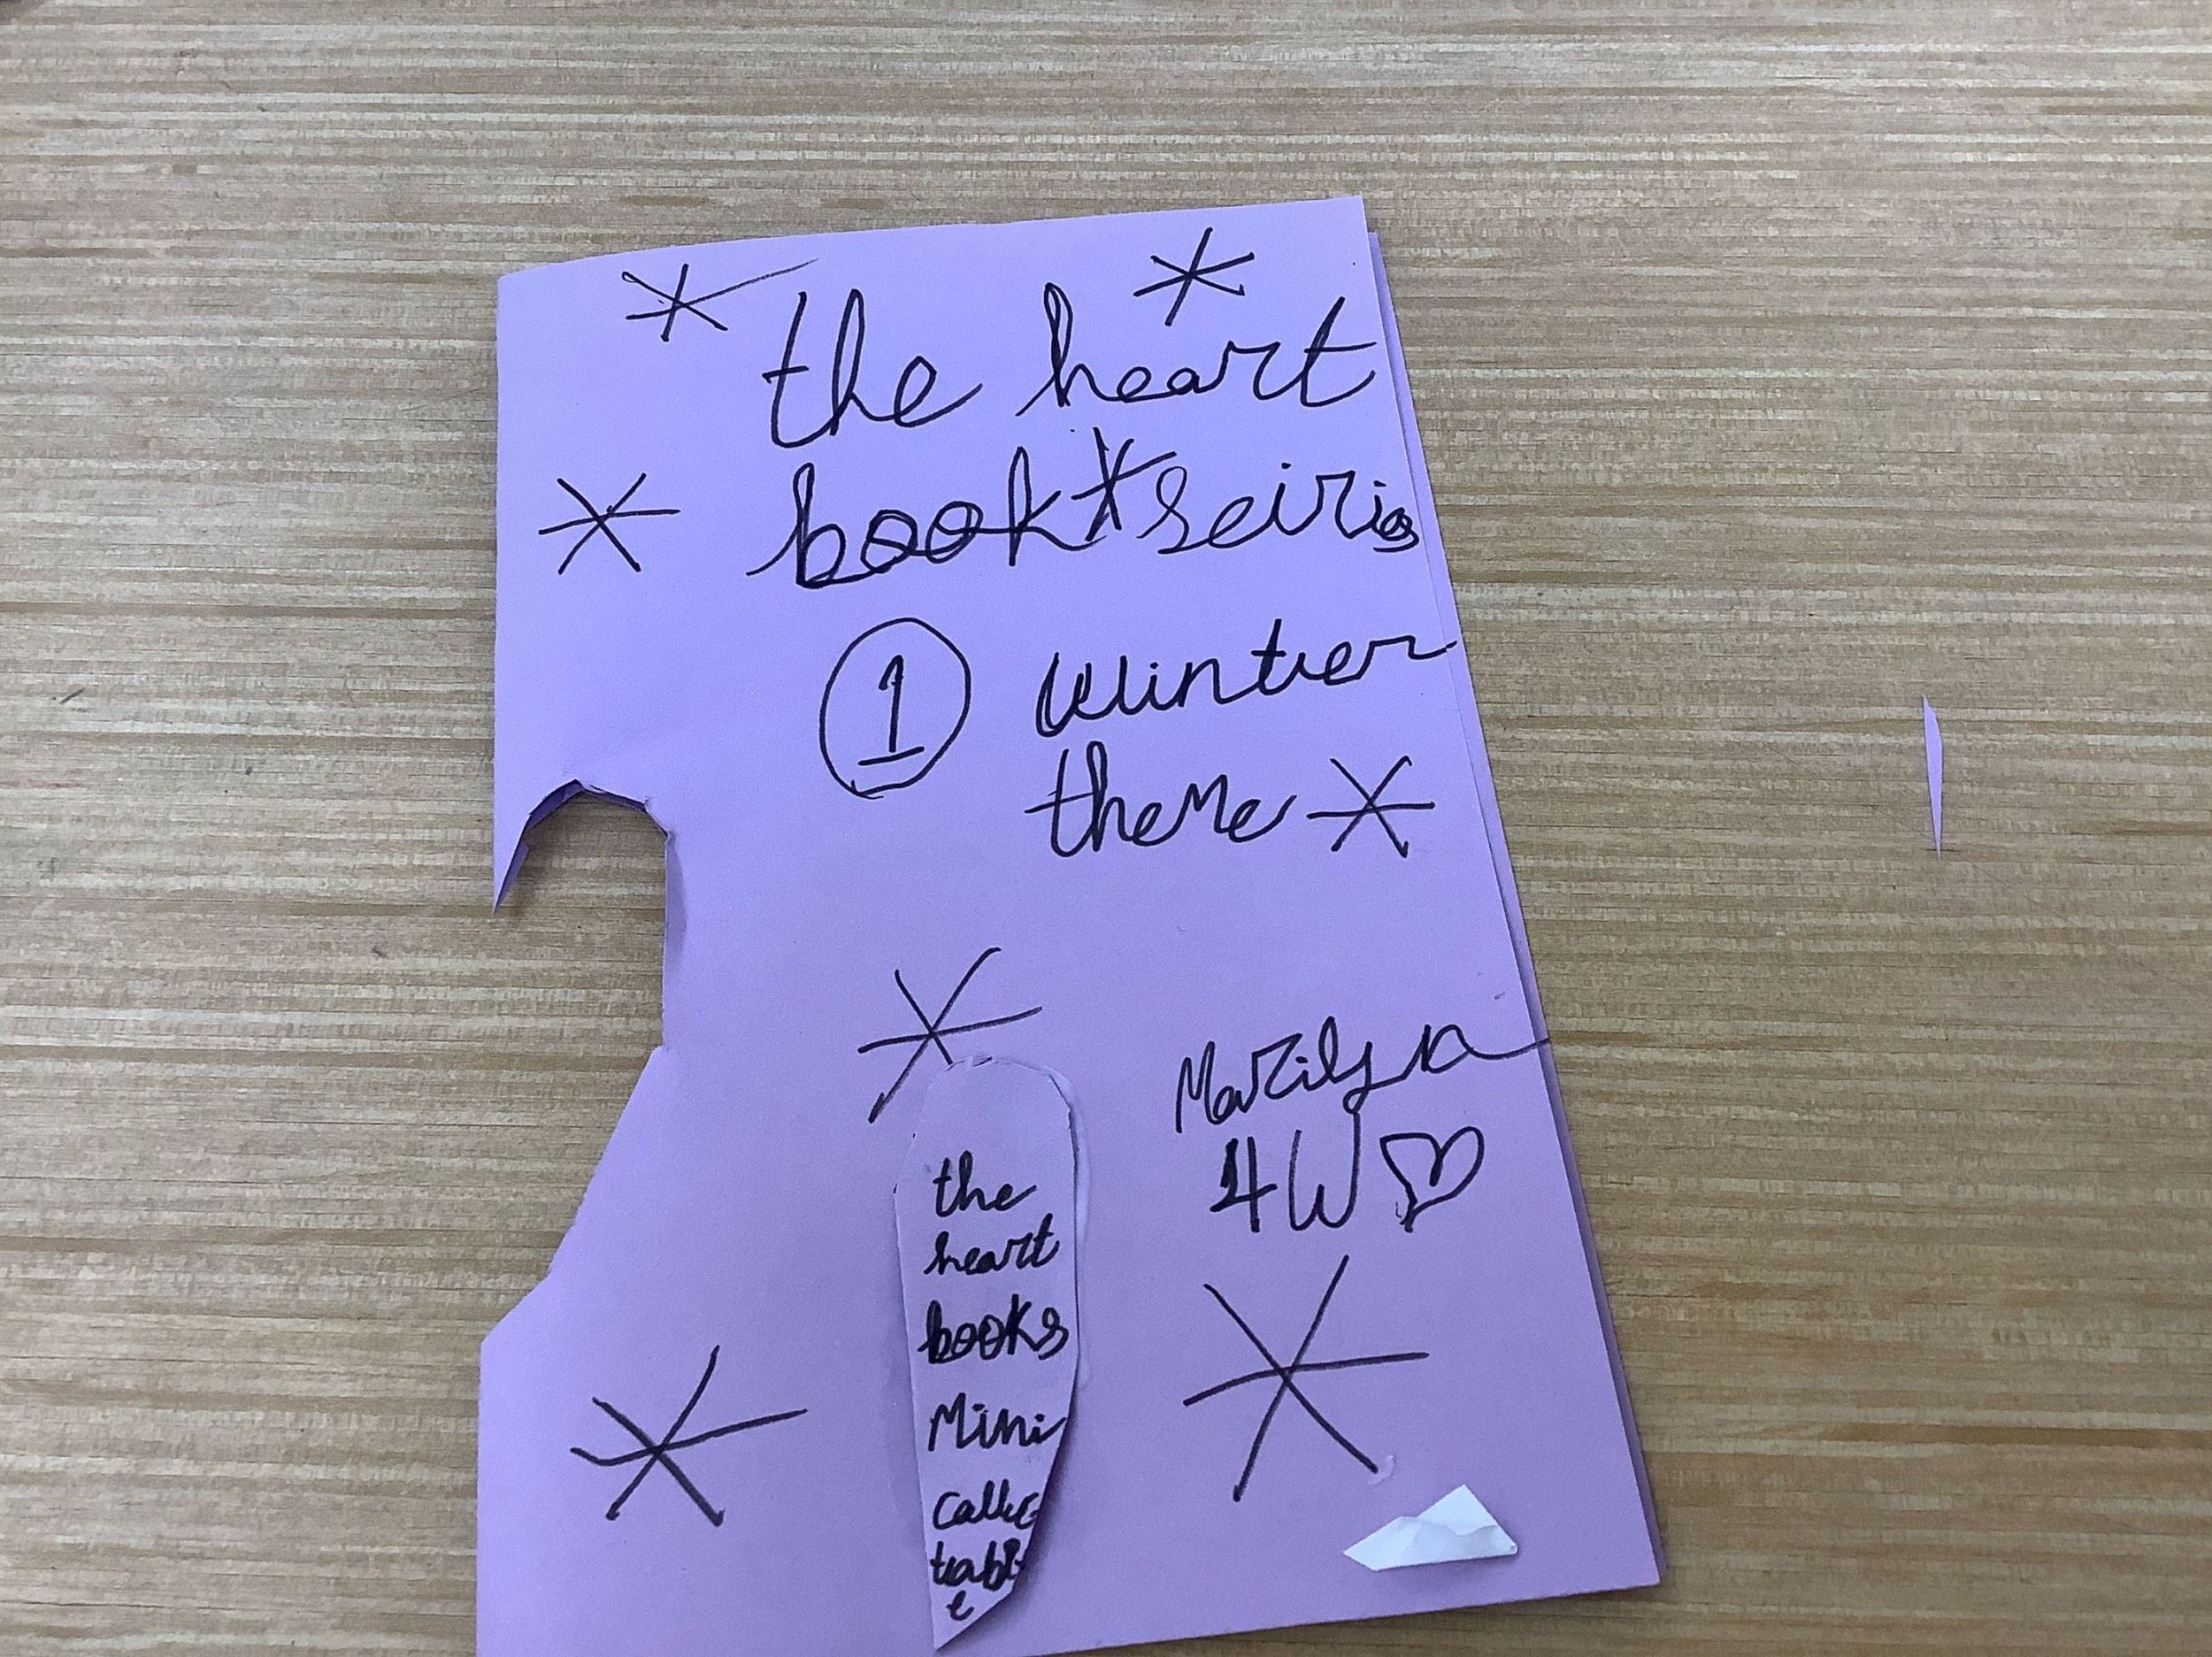 the heart
book seiris
1 Winter
theme
Marilyn
4W
the
heart
books
Mini
callec
table
e